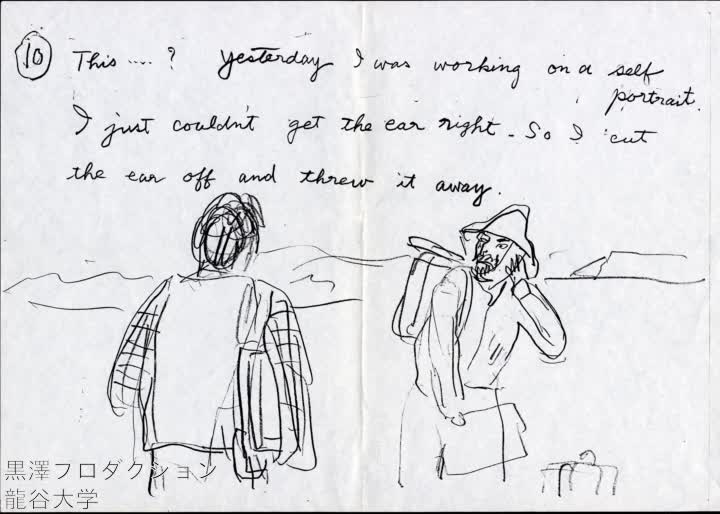 10 This .... ? Yesterday I was working on a self
portrait.
I just couldn't get the ear right. So I cut
the ear off and threw it away.
黒澤プロダクション
龍谷大学